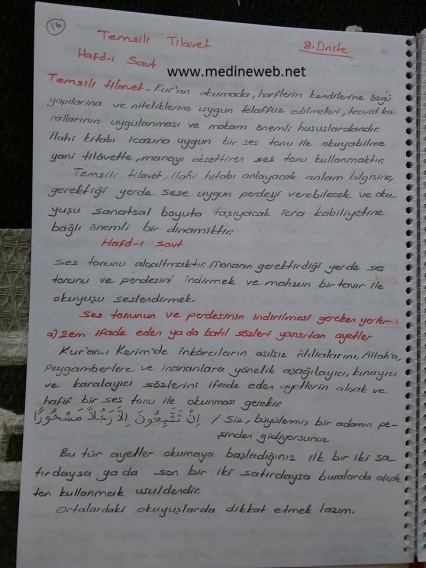 16
Temsili Tilavet
8. Ünite
Hafd-ı Savt
www.medineweb.net
Temsili tilavet - Kur'an okumada, harflerin kendilerine özgü
yapılarına ve niteliklerine uygun telaffuz edilmeleri, tecvid ku
rallarının uygulanması ve makam önemli hususlardandır.
İlahi kitabı icazına uygun bir ses tonu ile okuyabilme
yani tilavette, manayı aksettiren ses tonu kullanmaktır.
Temsili tilavet, ilahi kitabı anlayacak anlam bilgisine,
gerektiği yerde sese uygun perdeyi verebilecek ve oku-
yuşu sanatsal boyuta taşıyacak icra kabiliyetine
bağlı önemli bir dinamiktir.
Hafd-ı savt
Ses tonunu alçaltmaktır. Mananın gerektirdiği yerde ses
tonunu ve perdesini indirmek ve mahzun bir tavır ile
okuyuşu seslendirmek.
Ses tonunun ve perdesinin indirilmesi gereken yerler
a) Zem ifade eden ya da batıl sözleri yansıtan ayetler
Kur'an-ı Kerim'de inkârcıların asılsız iddialarını, Allah'a,
peygamberlere ve inananlara yönelik aşağılayıcı, kınayıcı
ve karalayıcı sözlerini ifade eden ayetlerin alçak ve
hafif bir ses tonu ile okunması gerekir.
اِنْ تَتَّبِعُونَ اِلاَّ رَجُلاً مَسْحُورًا / Siz, büyülenmiş bir adamın pe-
şinden gidiyorsunuz
Bu tür ayetler okumaya başladığınız ilk bir iki sa-
tırdaysa ya da son bir iki satırdaysa buralarda alçak
ton kullanmak usuldendir.
Ortalardaki okuyuşlarda dikkat etmek lazım.